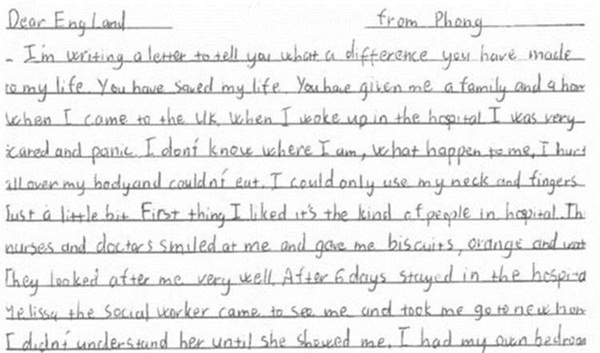 Dear England from Phong
- I'm writing a letter to tell you what a difference you have made
to my life. You have saved my life. You have given me a family and a hom
when I came to the UK. When I woke up in the hospital I was very
scared and panic. I don't know where I am, what happen to me, I hurt
all over my body and couldn't eat. I could only use my neck and fingers
Just a little bit. First thing I liked it's the kind of people in hospital. Th
nurses and doctors smiled at me and gave me biscuits, orange and wat
They looked after me very well. After 6 days stayed in the hospita
Melissa the social worker came to see me and took me go to new hom
I didn't understand her until she showed me. I had my own bedroom